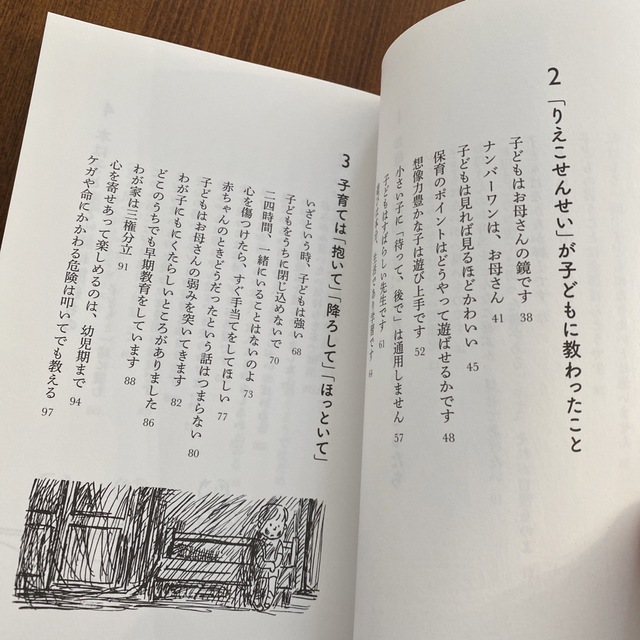 2 「りえこせんせい」が子どもに教わったこと
子どもはお母さんの鏡です 38
ナンバーワンは、お母さん 41
子どもは見れば見るほどかわいい 45
保育のポイントはどうやって遊ばせるかです 48
想像力豊かな子は遊び上手です 52
小さい子に「待って、後で」は通用しません 57
子どもはすばらしい先生です 61
3 子育ては「抱いて」「降ろして」「ほっといて」
いざという時、子どもは強い 68
子どもをうちに閉じ込めないで 70
二四時間、一緒にいることはないのよ 73
心を傷つけたら、すぐ手当てをしてほしい 77
赤ちゃんのときどうだったという話はつまらない 80
子どもはお母さんの弱みを突いてきます 82
わが子にもにくたらしいところがありました 86
どこのうちでも早期教育をしています 88
わが家は三権分立 91
心を寄せあって楽しめるのは、幼児期まで 94
ケガや命にかかわる危険は叩いてでも教える 97